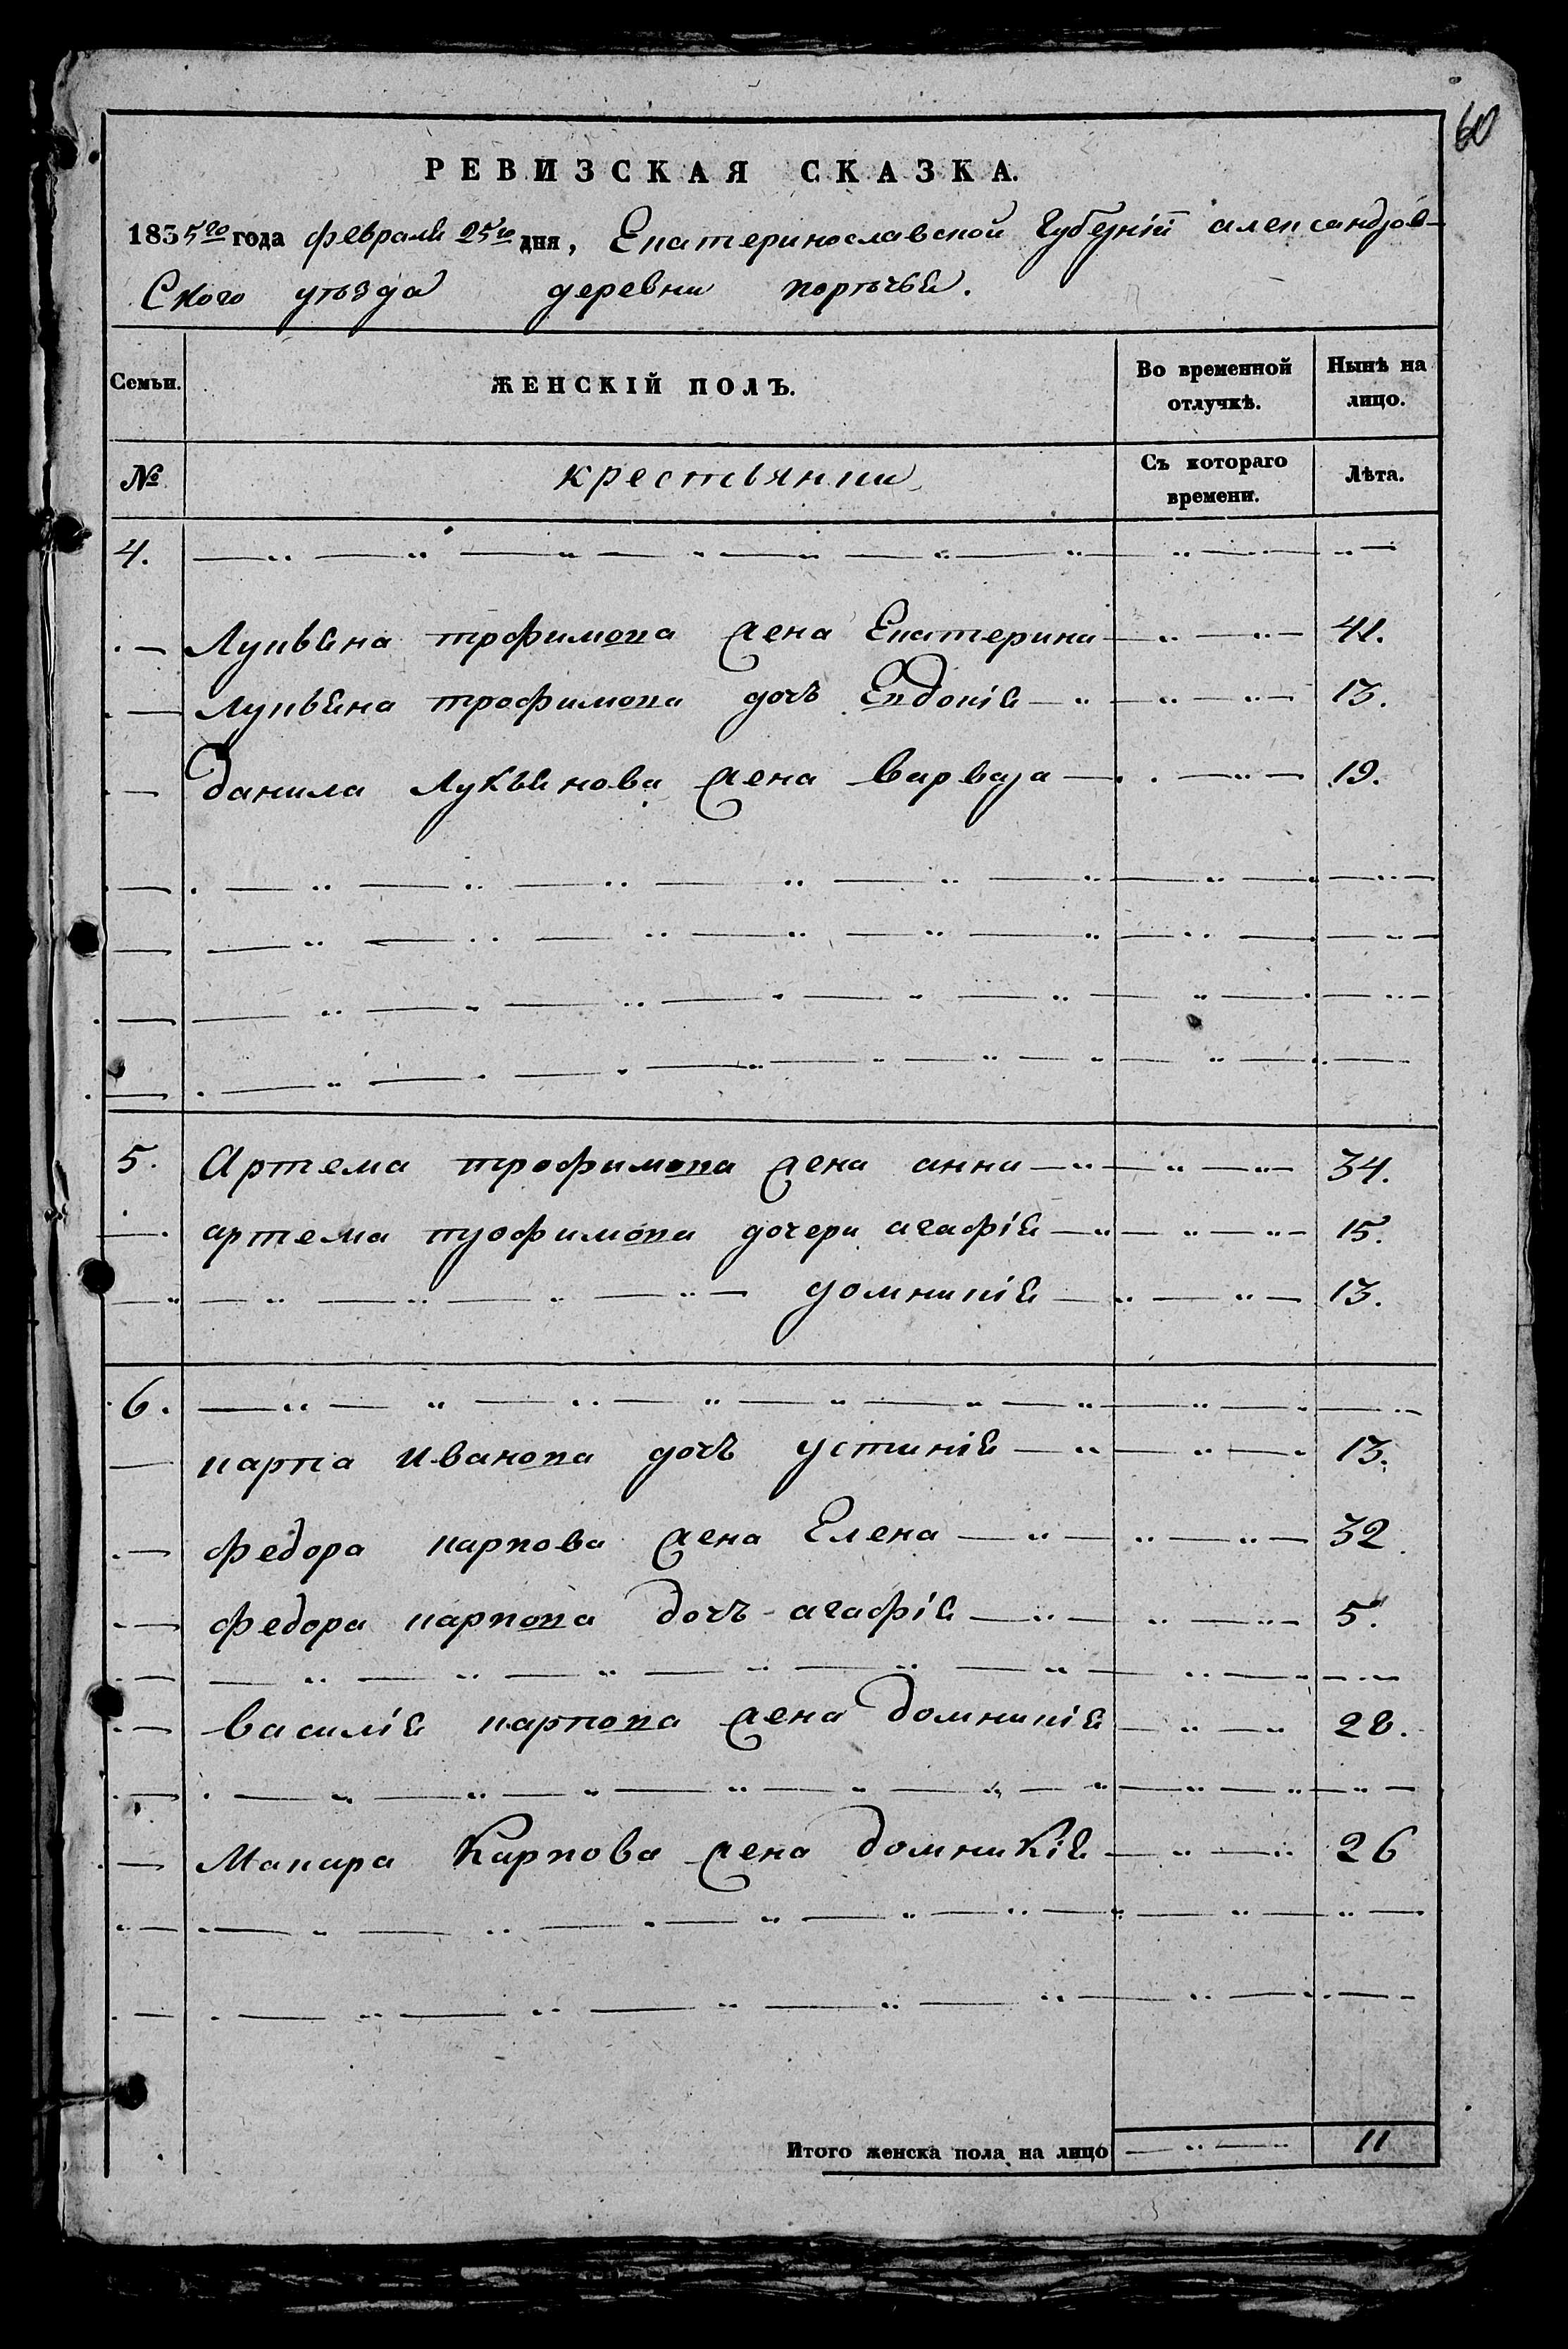 60
РЕВИЗСКАЯ СКАЗКА.
1835го года февраля 25го дня, Екатеринославской Губерніи александров-
Ского уѣзда деревни
Семьи. ЖЕНСКІЙ ПОЛЪ. Во временной отлучкѣ. Нынѣ на лицо.
№ крестьянки Съ котораго времени. Лѣта.
4. — „ — „ — „ — „ —
— Лукьяна трофимова жена Екатерина — „ — „ — 41.
— Лукьяна трофимова дочь Евдокія — „ — „ — „ — 13.
— Данила Лукьянова жена варвара — „ — „ — 19.
— „ — „ — „ — „ —
— „ — „ — „ — „ —
— „ — „ — „ — „ —
— „ — „ — „ — „ —
5. Артема трофимова жена анна — „ — „ — „ — 34.
— артема трофимова дочери агафія — „ — „ — „ — 15.
— „ — „ — „ — „ — домникія — „ — „ — 13.
6. — „ — „ — „ — „ —
— карпа Иванова дочь устинія — „ — „ — 13.
— федора карпова жена Елена — „ — „ — „ — 32.
— федора карпова дочь агафія — „ — „ — „ — 5.
— „ — „ — „ — „ —
— василія карпова жена домникія — „ — „ 28.
— „ — „ — „ — „ —
— Макара Карпова жена домникія — „ — „ 26
— „ — „ — „ — „ —
— „ — „ — „ — „ —
Итого женска пола на лицо — „ — 11